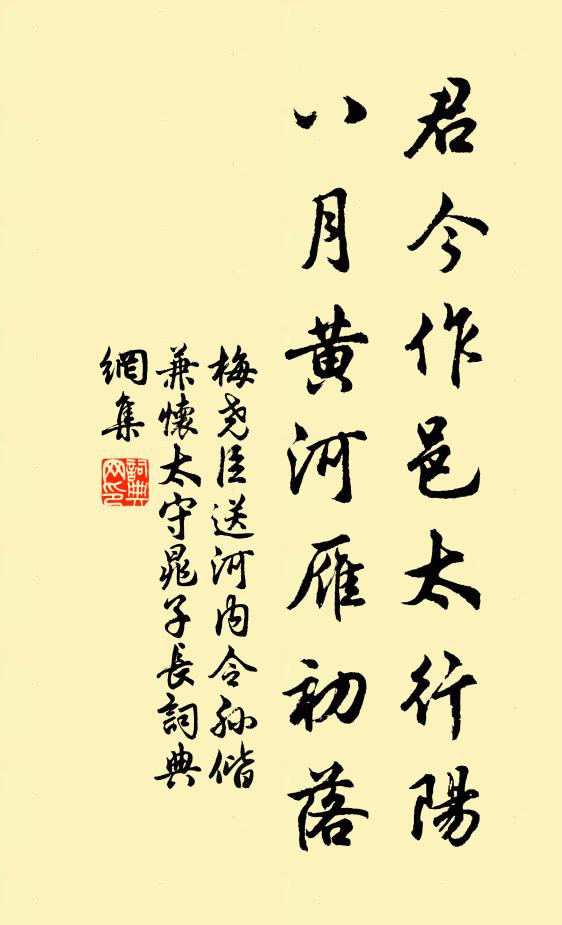 君今作邑太行陽
八月黃河雁初落
梅堯臣送河內令孫偕
兼懷太守晁子長詞典
網集
詞典
网印